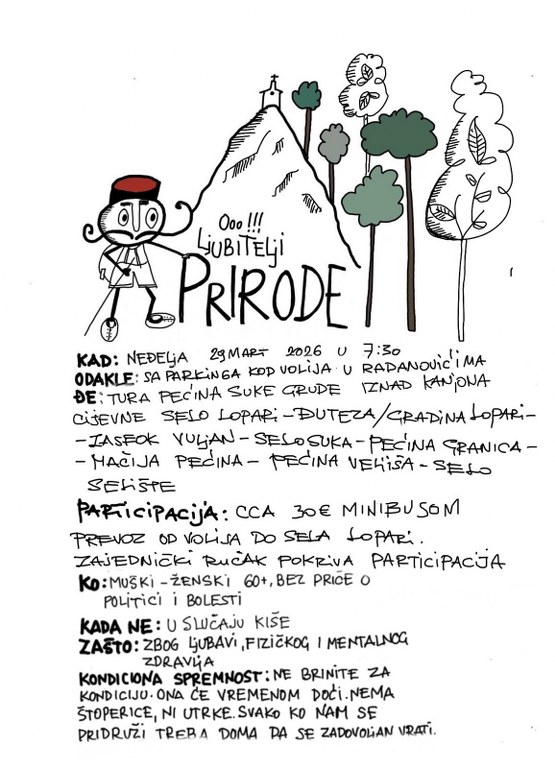 Ooo !!!
LJUBITELJI
PRIRODE
KAD: NEDELJA 29 MART 2026 U 7:30
ODAKLE: SA PARKINGA KOD VOLIJA U RADANOVIĆIMA
ĐE: TURA PEĆINA SUKE GRUDE IZNAD KANJONA
CIJEVNE SELO LOPARI-DUTEZA/GRADINA LOPARI-
-ZASEOK VULJAN-SELO SUKA-PEĆINA GRANICA-
-MAČIJA PEĆINA-PEĆINA VELIŠA-SELO
SELIŠTE
PARTICIPACIJA: CCA 30€ MINIBUSOM
PREVOZ OD VOLIJA DO SELA LOPARI.
ZAJEDNIČKI RUČAK POKRIVA PARTICIPACIJA
KO: MUŠKI-ŽENSKI 60+, BEZ PRIČE O
POLITICI I BOLESTI
KADA NE: U SLUČAJU KIŠE
ZAŠTO: ZBOG LJUBAVI, FIZIČKOG I MENTALNOG
ZDRAVLJA
KONDICIONA SPREMNOST: NE BRINITE ZA
KONDICIJU. ONA ĆE VREMENOM DOĆI. NEMA
ŠTOPERICE, NI UTRKE. SVAKO KO NAM SE
PRIDRUŽI TREBA DOMA DA SE ZADOVOLJAN VRATI.